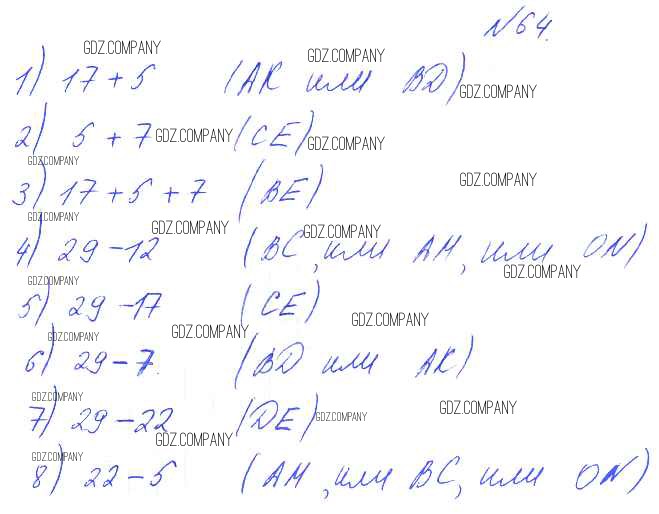 №64.
GDZ.COMPANY GDZ.COMPANY
1) 17+5 (АК или BD) GDZ.COMPANY
2) 5+7 GDZ.COMPANY (CE) GDZ.COMPANY
GDZ.COMPANY GDZ.COMPANY
3) 17+5+7 (BE)
GDZ.COMPANY GDZ.COMPANY GDZ.COMPANY
4) 29-12 (BC, или АМ, или ON)
GDZ.COMPANY GDZ.COMPANY
5) 29-17 (CE)
GDZ.COMPANY GDZ.COMPANY GDZ.COMPANY
6) 29-7. (BD или АК)
GDZ.COMPANY GDZ.COMPANY
7) 29-22 (DE) GDZ.COMPANY
GDZ.COMPANY GDZ.COMPANY
8) 22-5 (АМ, или BC, или ON)